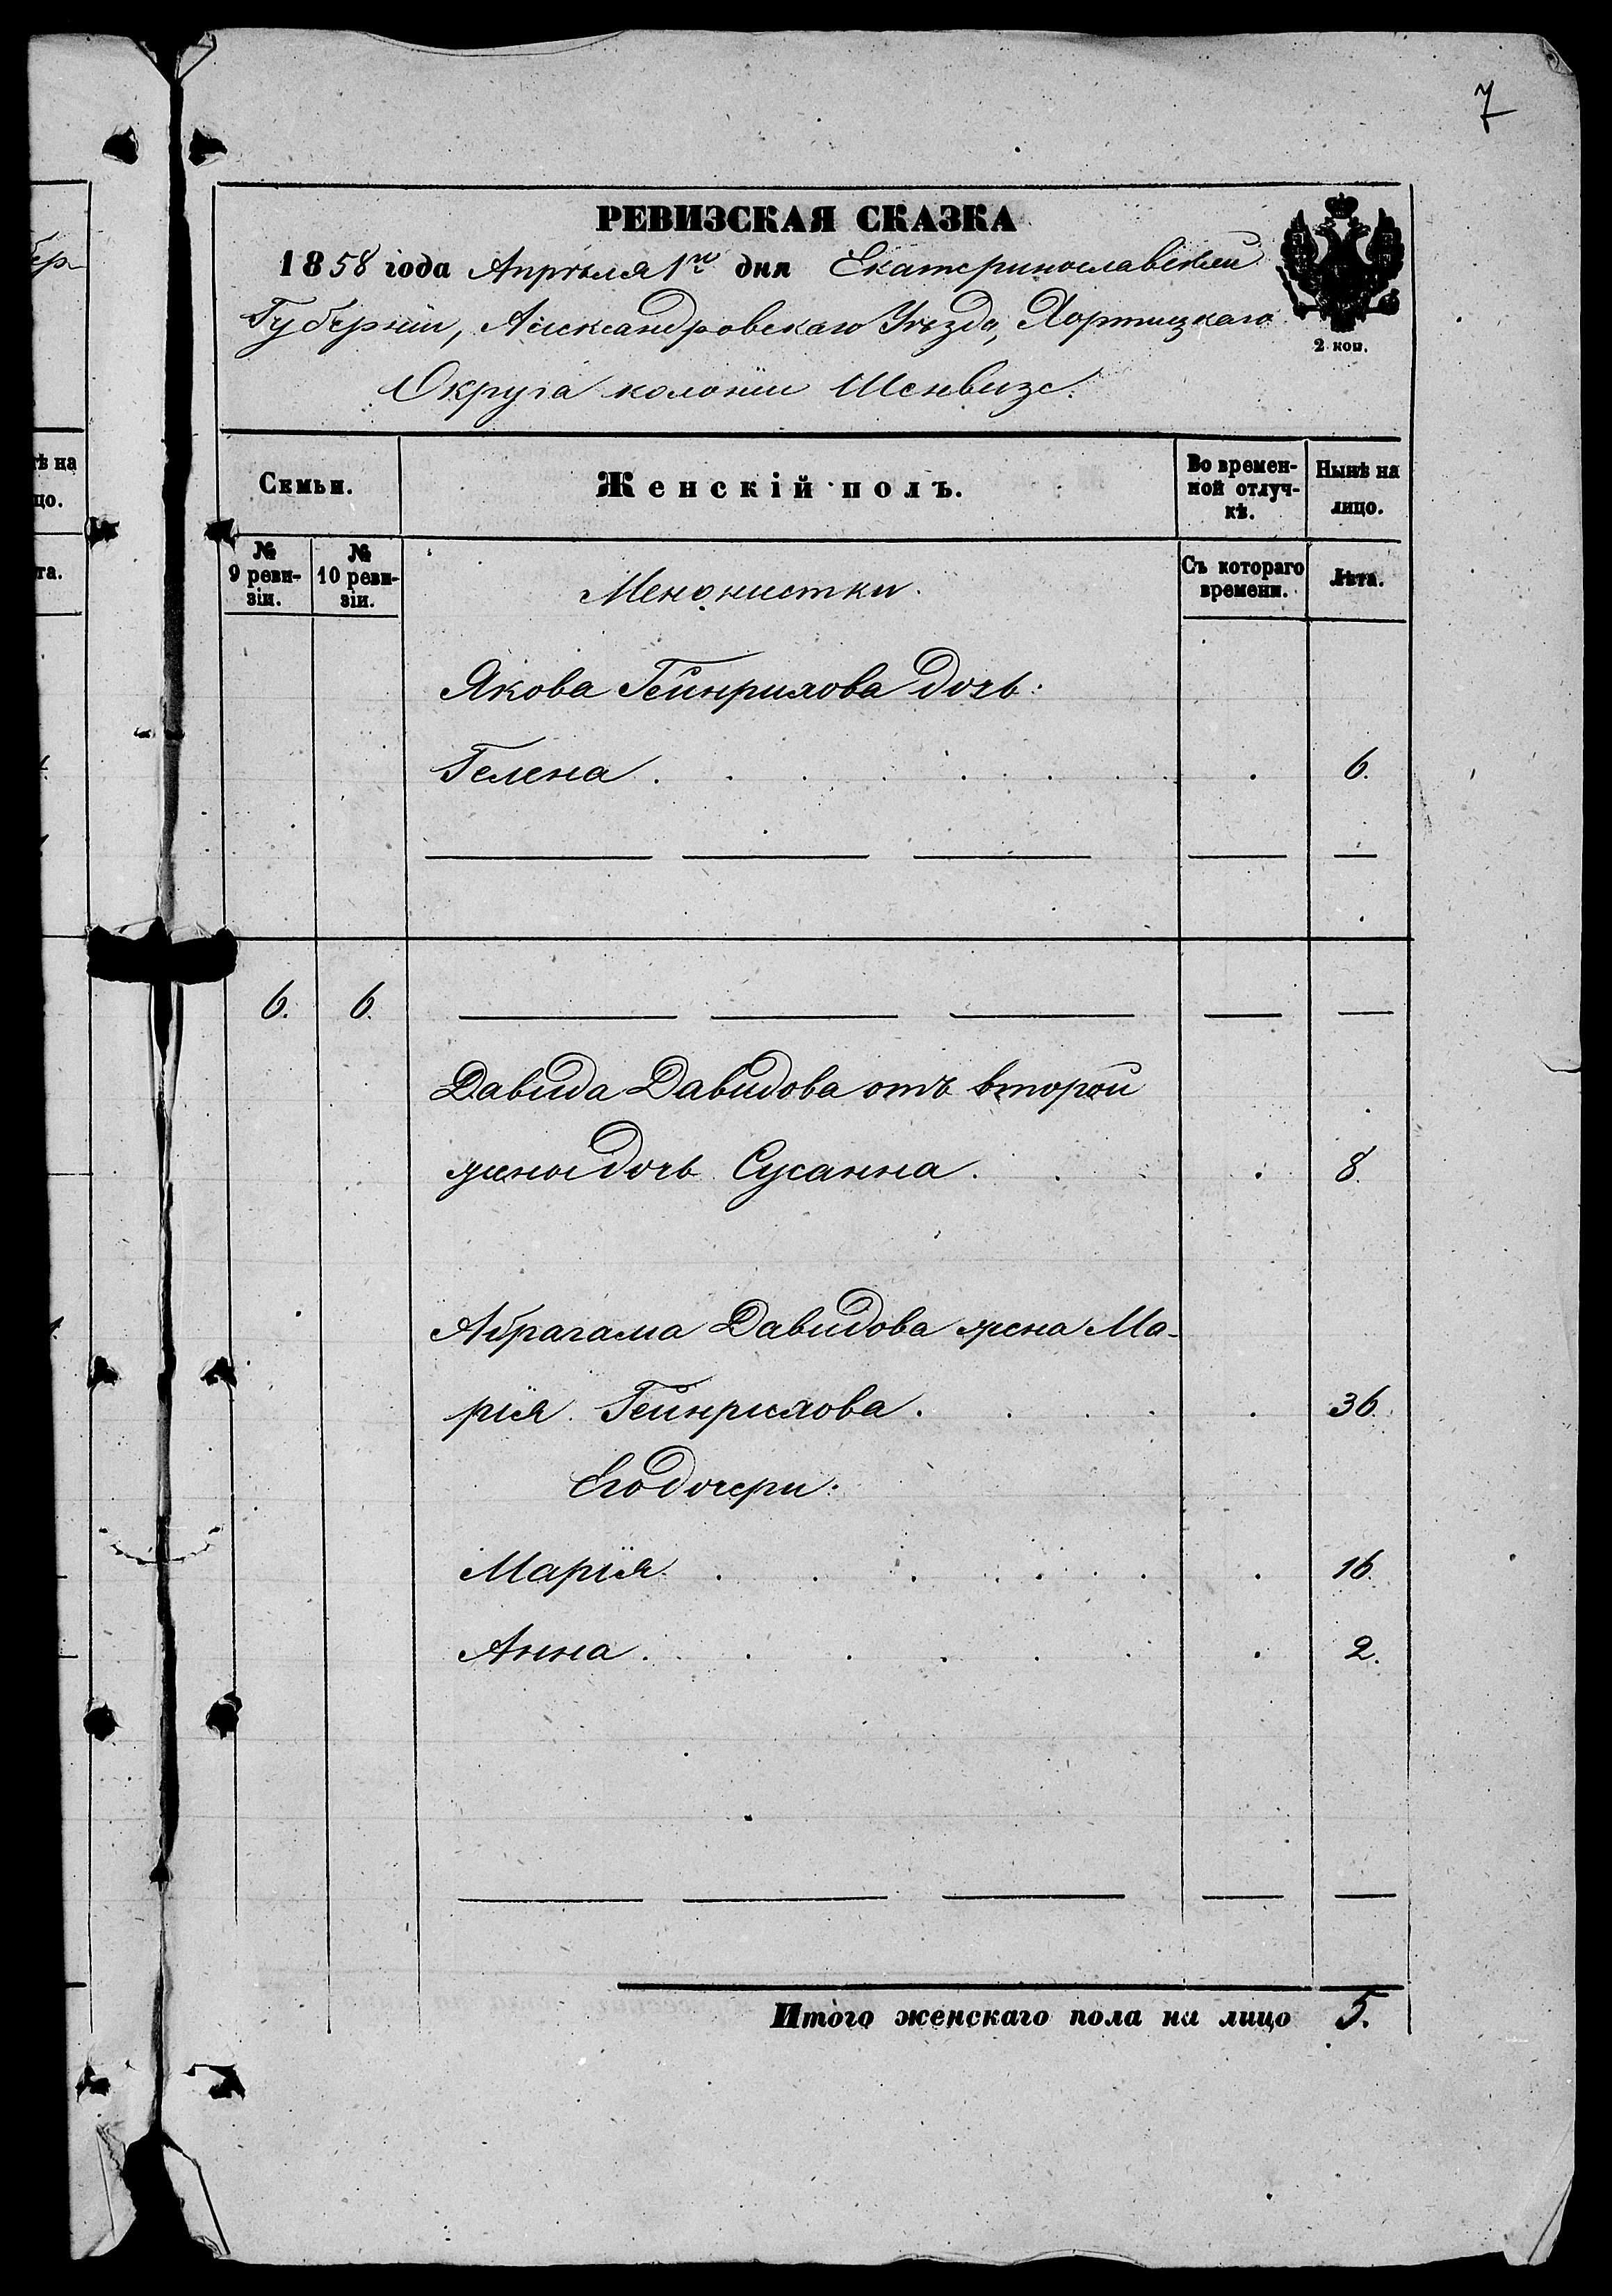 7
РЕВИЗСКАЯ СКАЗКА
1858 года Апрѣля 1го дня Екатеринославской
Губерніи, Александровскаго Уѣзда, Хортицкаго
2 коп.
Округа колоніи Шенвизе.
Семьи.
Женскій полъ.
Во времен-
ной отлуч-
кѣ.
Нынѣ на
лицо.
№
9 реви-
зіи.
№
10 реви-
зіи.
Менонистки.
Съ котораго
времени.
Лѣта.
Якова Гейнрихова дочь:
Гелена . . . . . . . . 6.
6. 6.
Давида Давидова отъ второй
жены дочь Сусанна . . . . 8.
Абрагама Давидова жена Ма-
рія Гейнрихова . . . . . 36.
Его дочери:
Марія . . . . . . . . 16.
Анна . . . . . . . . 2.
Итого женскаго пола на лицо 5.